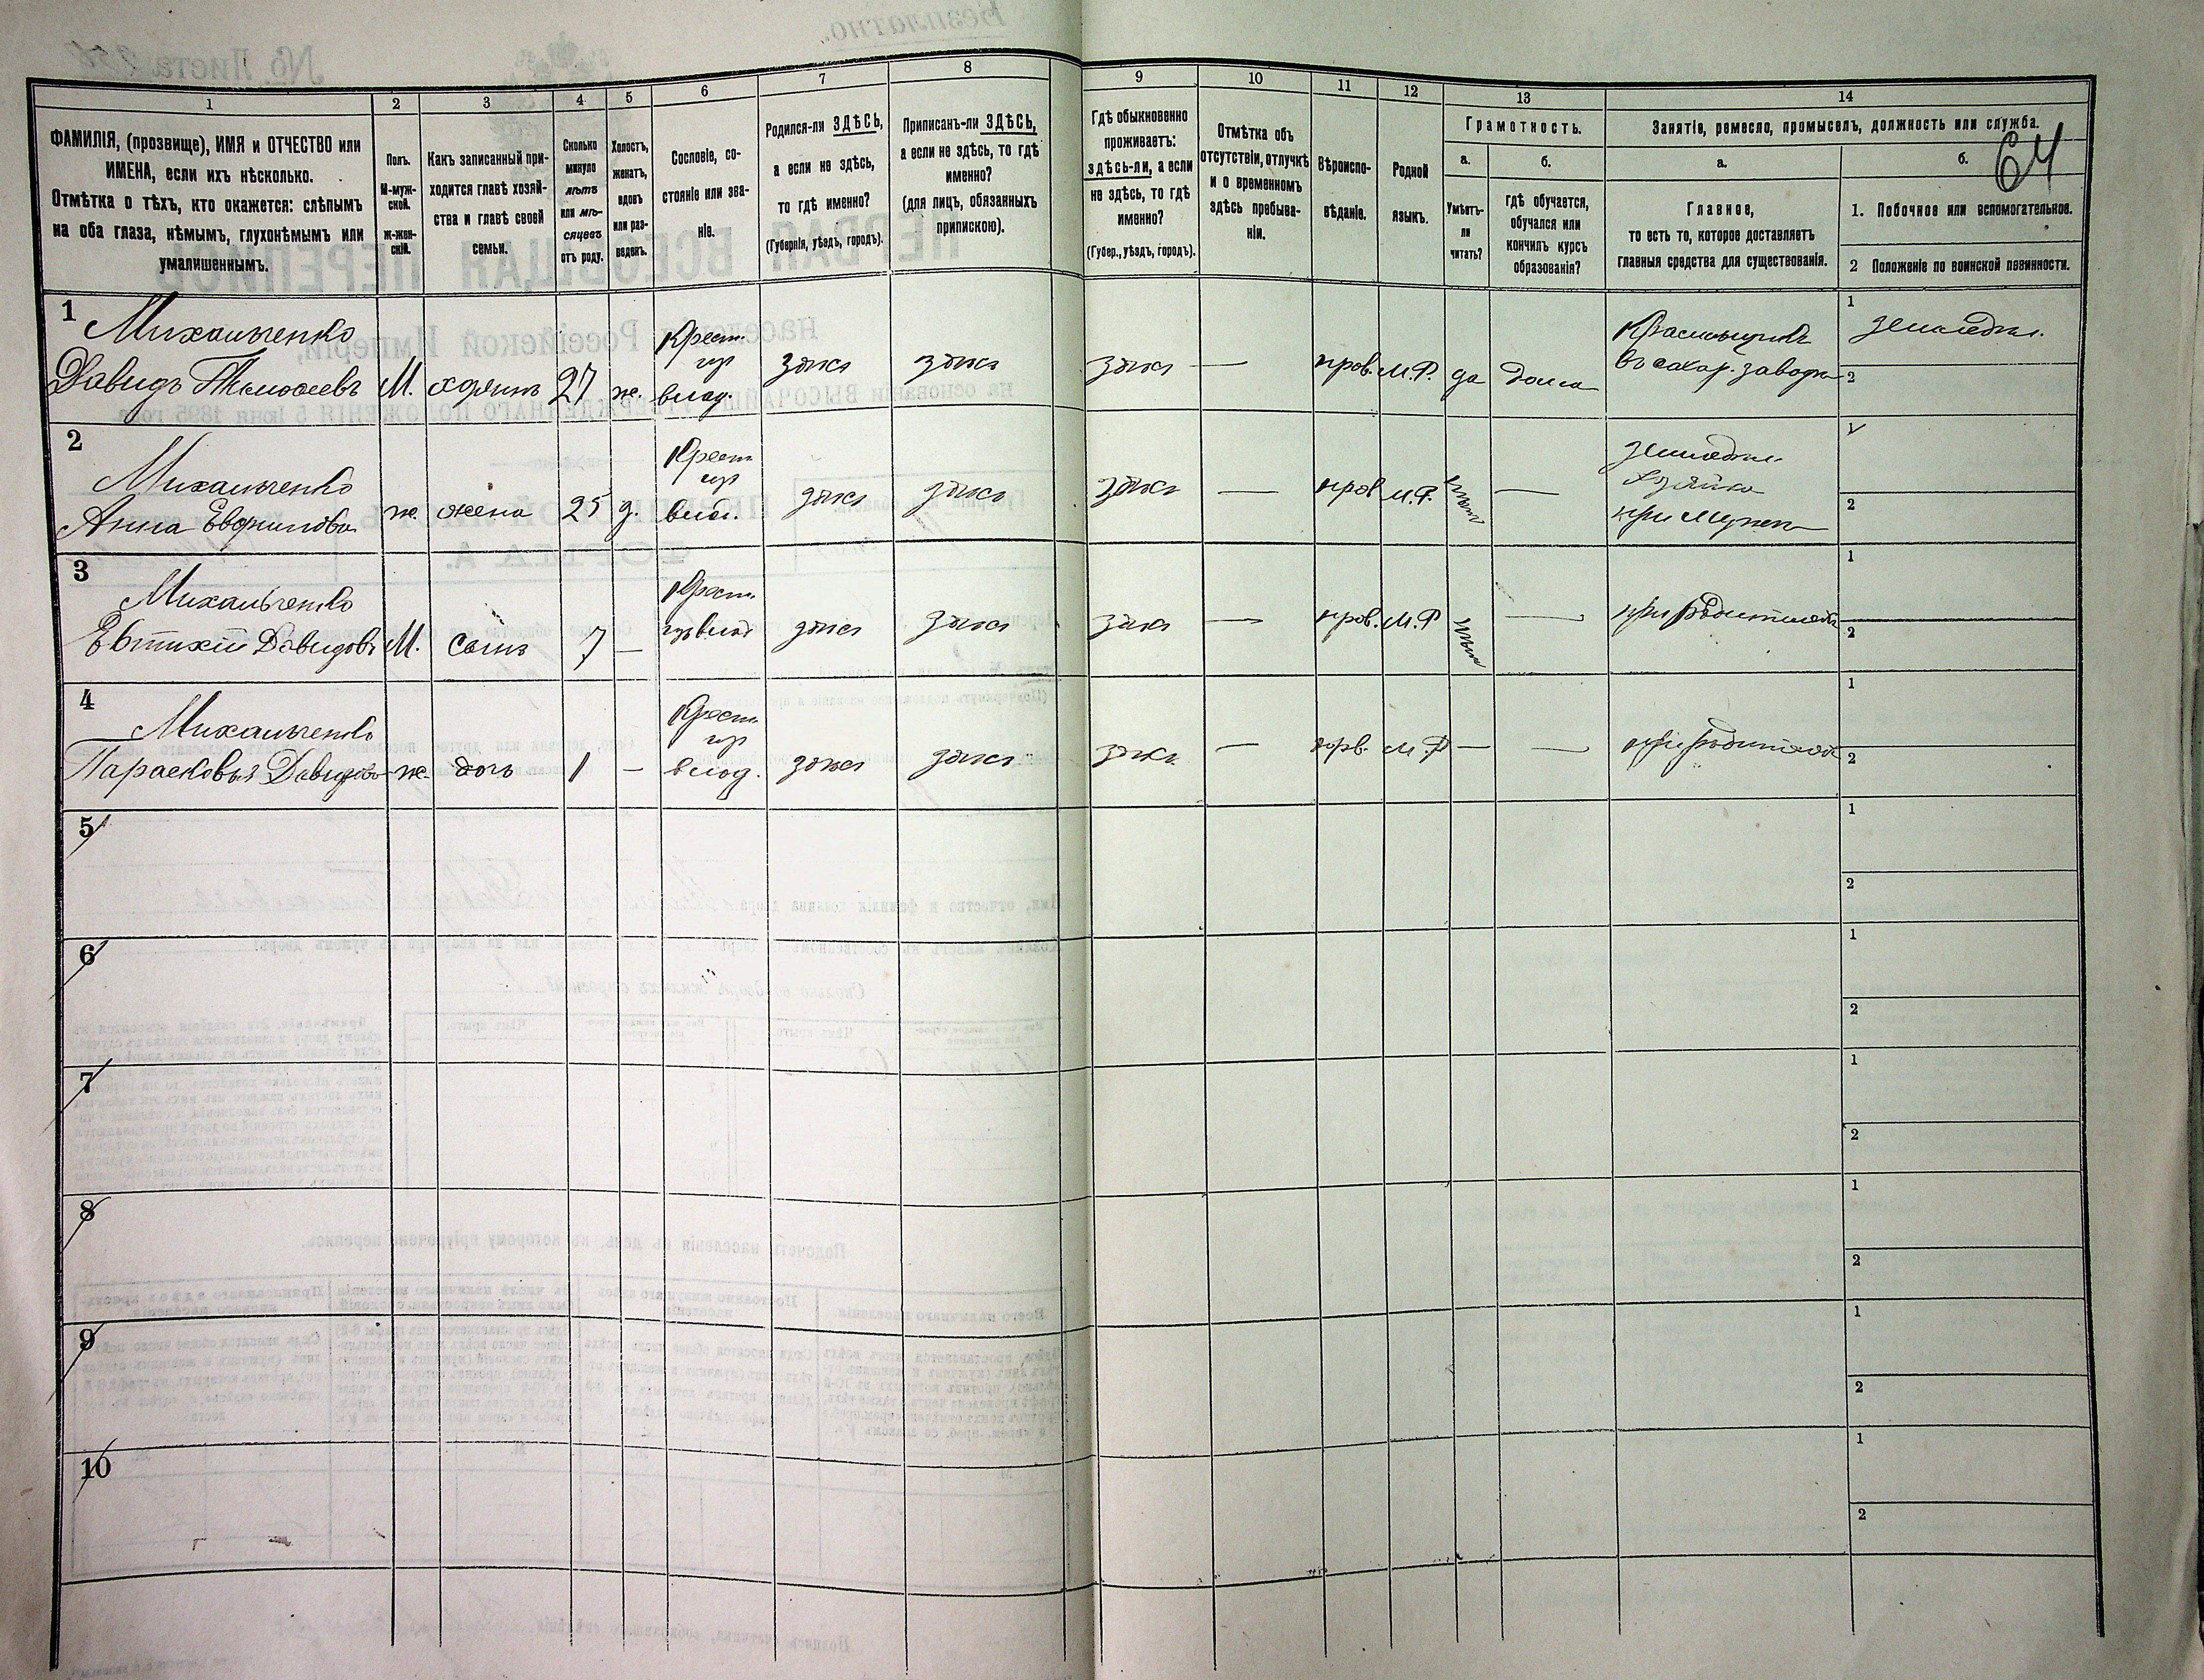 64
1
2
3
4
5
6
7
8
9
10
11
12
13
14
ФАМИЛІЯ, (прозвище), ИМЯ и ОТЧЕСТВО или
ИМЕНА, если ихъ нѣсколько.
Отмѣтка о тѣхъ, кто окажется: слѣпымъ
на оба глаза, нѣмымъ, глухонѣмымъ или
умалишеннымъ.
Полъ.
М-муж-
ской.
Ж-жен-
скій.
Какъ записанный при-
ходится главѣ хозяй-
ства и главѣ своей
семьи.
Сколько
минуло
лѣтъ
или мѣ-
сяцевъ
отъ роду.
Холостъ,
женатъ,
вдовъ
или раз-
веденъ.
Сословіе, со-
стояніе или зва-
ніе.
Родился-ли ЗДѢСЬ,
а если не здѣсь,
то гдѣ именно?
(Губернія, уѣздъ, городъ).
Приписанъ-ли ЗДѢСЬ,
а если не здѣсь, то гдѣ
именно?
(для лицъ, обязанныхъ
припискою).
Гдѣ обыкновенно
проживаетъ:
здѣсь-ли, а если
не здѣсь, то гдѣ
именно?
(Губер., уѣздъ, городъ).
Отмѣтка объ
отсутствіи, отлучкѣ
и о временномъ
здѣсь пребыва-
ніи.
Вѣроиспо-
вѣданіе.
Родной
языкъ.
Грамотность.
а.
б.
Умѣетъ-
ли
читать?
гдѣ обучается,
обучался или
кончилъ курсъ
образованія?
Занятіе, ремесло, промыселъ, должность или служба.
а.
б.
Главное,
то есть то, которое доставляетъ
главныя средства для существованія.
1. Побочное или вспомогательное.
2 Положеніе по воинской повинности.
1
Михальченко
Давидъ Тимофеевъ
М.
хозяинъ
27
ж.
Крест.
влад.
здѣсь
здѣсь
здѣсь
—
прав.
М.Р.
да
дома
въ сахар. заводѣ
1
земледѣл.
2
2
Михальченко
Анна
ж.
жена
25
з.
Крест.
здѣсь
здѣсь
здѣсь
—
прав
М.Р.
нѣтъ
—
земледѣл.
хозяйка
при мужѣ
1
2
3
Михальченко
Евтихій Давидовъ
М.
сынъ
7
—
Крест.
здѣсь
здѣсь
здѣсь
—
прав.
М.Р
нѣтъ
—
при родителяхъ
1
2
4
Михальченко
Парасковья Давидова
ж.
дочь
1
—
Крест.
влад.
здѣсь
здѣсь
здѣсь
—
прав.
М.Р
—
—
при родителяхъ
1
2
5
1
2
6
1
2
7
1
2
8
1
2
9
1
2
10
1
2